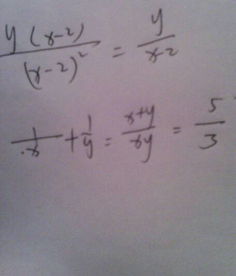 y(x-2)/(x-2)² = y/x-2
1/x + 1/y = x+y/xy = 5/3